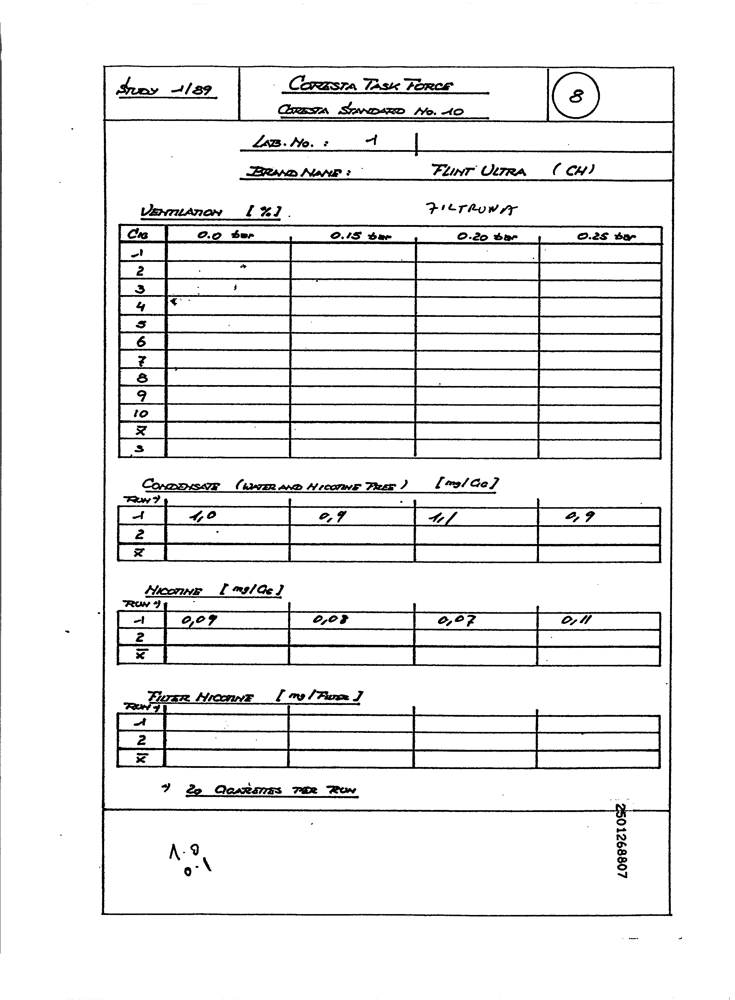 STUDY 1/89
CORESTA TASK FORCE
8
CORESTA STANDARD No. 10
LAB. No. : 1
BRAND NAME : FLINT ULTRA (CH)
VENTILATION [%] FILTRONA
CIG 0.0 bar 0.15 bar 0.20 bar 0.25 bar
1
2
3
4
5
6
7
8
9
10
x̄
S
CONDENSATE (WATER AND NICOTINE FREE) [mg/CIG]
RUN *)
1 1,0 0,9 1,1 0,9
2
x̄
NICOTINE [mg/CIG]
RUN *)
1 0,09 0,08 0,07 0,11
2
x̄
FILTER NICOTINE [mg/FILTER]
RUN *)
1
2
x̄
*) 20 CIGARETTES PER RUN
2501268807
1.0
0.1